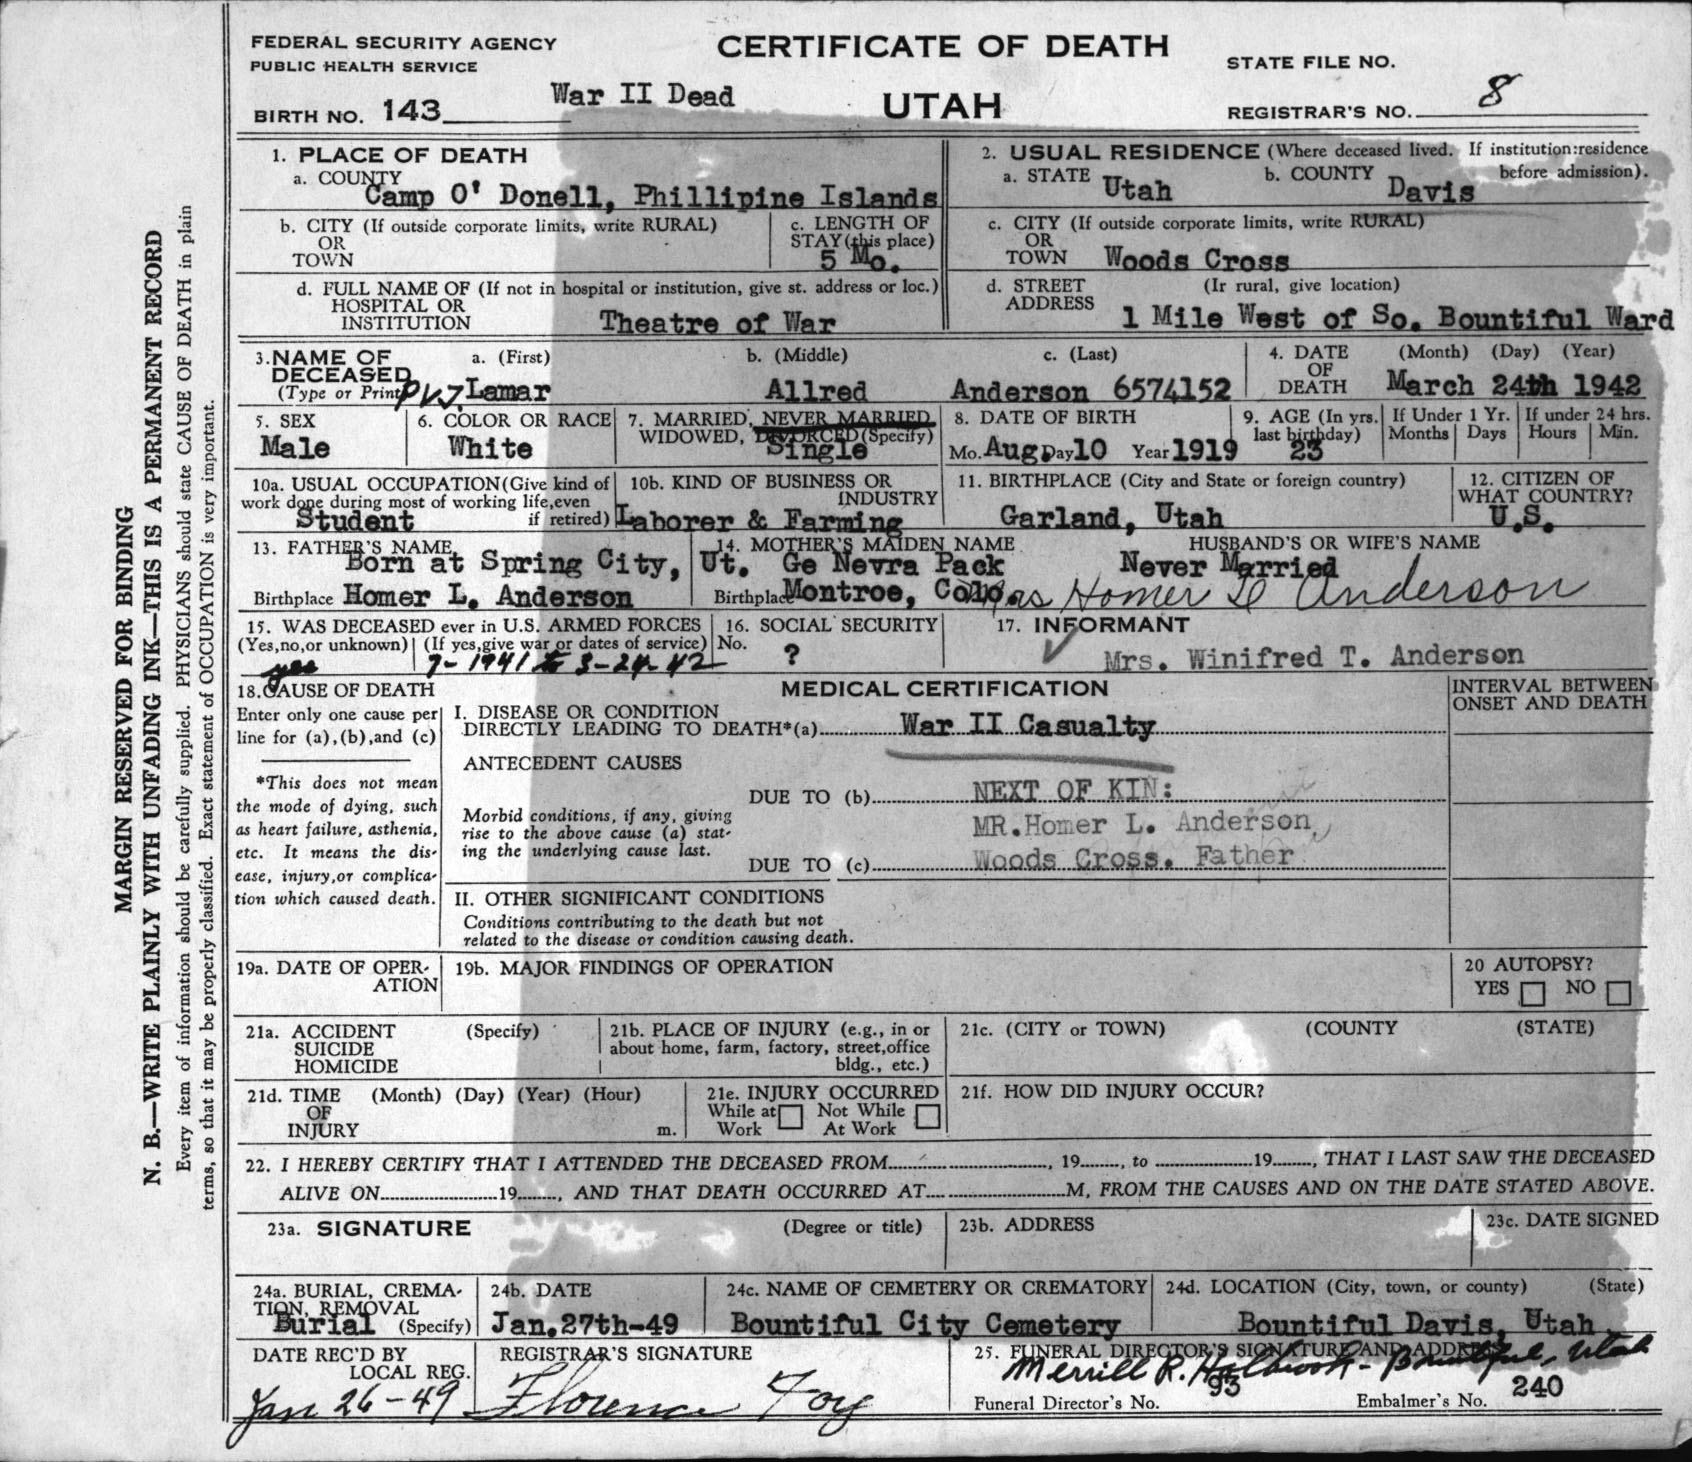 FEDERAL SECURITY AGENCY
PUBLIC HEALTH SERVICE
BIRTH NO. 143
War II Dead
CERTIFICATE OF DEATH
UTAH
STATE FILE NO.
REGISTRAR'S NO. 8
MARGIN RESERVED FOR BINDING
N. B.—WRITE PLAINLY WITH UNFADING INK—THIS IS A PERMANENT RECORD
Every item of information should be carefully supplied. PHYSICIANS should state CAUSE OF DEATH in plain
terms, so that it may be properly classified. Exact statement of OCCUPATION is very important.
1. PLACE OF DEATH
a. COUNTY
Camp O' Donell, Phillipine Islands
b. CITY (If outside corporate limits, write RURAL)
OR
TOWN
c. LENGTH OF
STAY (this place)
5 Mo.
d. FULL NAME OF (If not in hospital or institution, give st. address or loc.)
HOSPITAL OR
INSTITUTION Theatre of War
2. USUAL RESIDENCE (Where deceased lived. If institution:residence
before admission).
a. STATE Utah b. COUNTY Davis
c. CITY (If outside corporate limits, write RURAL)
OR
TOWN Woods Cross
d. STREET (Ir rural, give location)
ADDRESS 1 Mile West of So. Bountiful Ward
3. NAME OF DECEASED
(Type or Print)
a. (First) b. (Middle) c. (Last)
Pvt. Lamar Allred Anderson 6574152
4. DATE OF DEATH (Month) (Day) (Year)
March 24th 1942
5. SEX
Male
6. COLOR OR RACE
White
7. MARRIED, NEVER MARRIED
WIDOWED, DIVORCED (Specify)
Single
8. DATE OF BIRTH
Mo. Aug. Day 10 Year 1919
9. AGE (In yrs. last birthday)
23
If Under 1 Yr.
Months Days
If under 24 hrs.
Hours Min.
10a. USUAL OCCUPATION (Give kind of
work done during most of working life, even
if retired)
Student
10b. KIND OF BUSINESS OR
INDUSTRY
Laborer & Farming
11. BIRTHPLACE (City and State or foreign country)
Garland, Utah
12. CITIZEN OF
WHAT COUNTRY?
U.S.
13. FATHER'S NAME
Born at Spring City, Ut.
Birthplace Homer L. Anderson
14. MOTHER'S MAIDEN NAME
Ge Nevra Pack
Birthplace Montroe, Colo.
HUSBAND'S OR WIFE'S NAME
Never Married
Mrs Homer L Anderson
15. WAS DECEASED ever in U.S. ARMED FORCES
(Yes,no,or unknown) (If yes,give war or dates of service)
yes 7-1941 to 3-24-42
16. SOCIAL SECURITY
No.
?
17. INFORMANT
✓ Mrs. Winifred T. Anderson
18. CAUSE OF DEATH
Enter only one cause per
line for (a),(b),and (c)
*This does not mean
the mode of dying, such
as heart failure, asthenia,
etc. It means the dis-
ease, injury,or complica-
tion which caused death.
MEDICAL CERTIFICATION
I. DISEASE OR CONDITION
DIRECTLY LEADING TO DEATH*(a) War II Casualty
ANTECEDENT CAUSES
DUE TO (b) NEXT OF KIN:
Morbid conditions, if any, giving
rise to the above cause (a) stat-
ing the underlying cause last.
MR.Homer L. Anderson,
DUE TO (c) Woods Cross. Father
INTERVAL BETWEEN
ONSET AND DEATH
II. OTHER SIGNIFICANT CONDITIONS
Conditions contributing to the death but not
related to the disease or condition causing death.
19a. DATE OF OPER-
ATION
19b. MAJOR FINDINGS OF OPERATION
20 AUTOPSY?
YES NO
21a. ACCIDENT (Specify)
SUICIDE
HOMICIDE
21b. PLACE OF INJURY (e.g., in or
about home, farm, factory, street,office
bldg., etc.)
21c. (CITY or TOWN) (COUNTY (STATE)
21d. TIME (Month) (Day) (Year) (Hour)
OF
INJURY m.
21e. INJURY OCCURRED
While at Work Not While At Work
21f. HOW DID INJURY OCCUR?
22. I HEREBY CERTIFY THAT I ATTENDED THE DECEASED FROM , 19 , to 19 , THAT I LAST SAW THE DECEASED
ALIVE ON 19 , AND THAT DEATH OCCURRED AT M, FROM THE CAUSES AND ON THE DATE STATED ABOVE.
23a. SIGNATURE (Degree or title)
23b. ADDRESS
23c. DATE SIGNED
24a. BURIAL, CREMA-
TION, REMOVAL
Burial (Specify)
24b. DATE
Jan.27th-49
24c. NAME OF CEMETERY OR CREMATORY
Bountiful City Cemetery
24d. LOCATION (City, town, or county) (State)
Bountiful Davis, Utah
DATE REC'D BY
LOCAL REG.
Jan 26-49
REGISTRAR'S SIGNATURE
Florence Foy
25. FUNERAL DIRECTOR'S SIGNATURE AND ADDRESS
Merrill R. Holbrook - Bountiful, Utah
Funeral Director's No. 93 Embalmer's No. 240